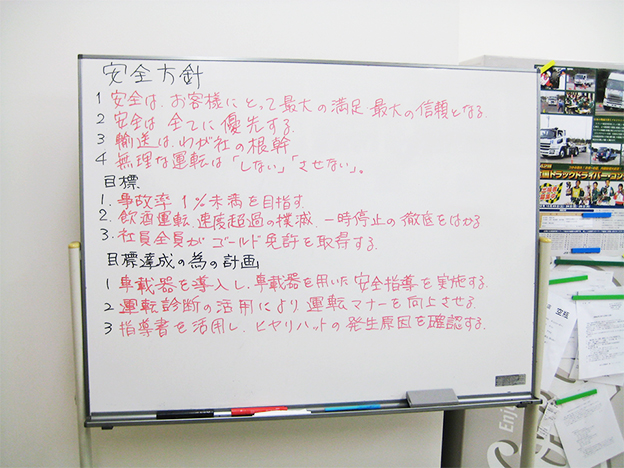 安全方針
1 安全は、お客様にとって最大の満足 最大の信頼となる。
2 安全は 全てに 優先する。
3 輸送は、わが社の根幹
4 無理な運転は「しない」「させない」。
目標
1. 事故率 1%未満を目指す
2. 飲酒運転、速度超過の撲滅、一時停止の徹底をはかる
3. 社員全員が ゴールド免許を取得する。
目標達成の為の計画
1 車載器を導入し、車載器を用いた安全指導を実施する。
2 運転診断の活用により 運転マナーを向上させる
3 指導書を活用し、ヒヤリハットの発生原因を確認する。
トラックドライバー・コン
空瓶
Enjoy